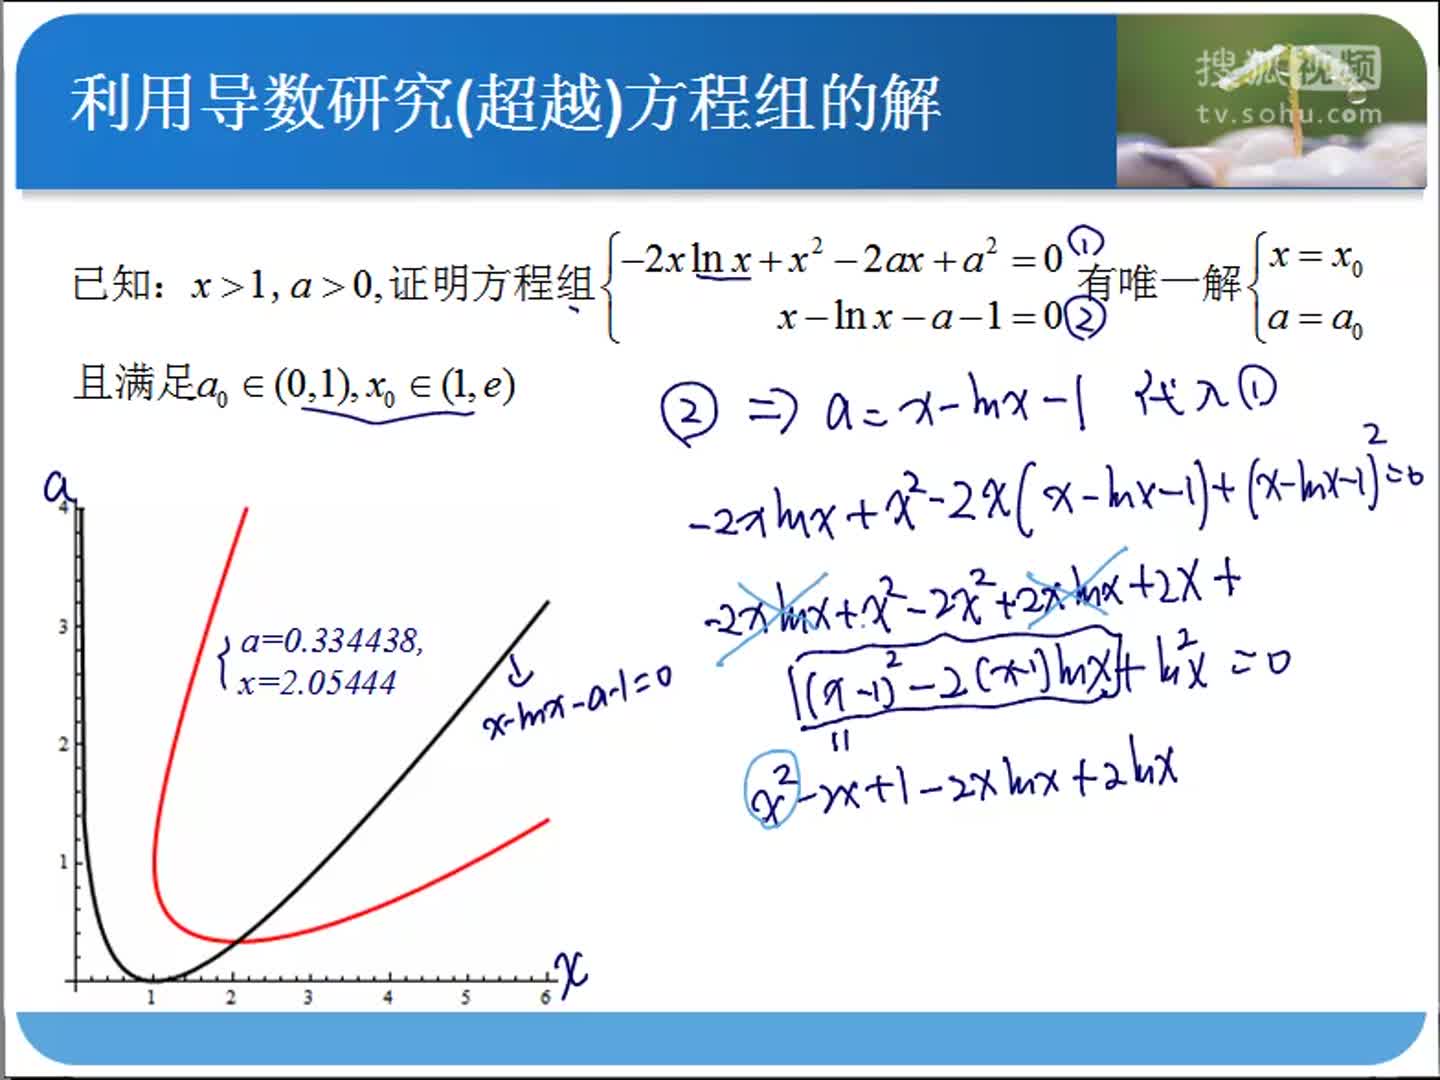 利用导数研究(超越)方程组的解
搜狐视频
tv.sohu.com
已知：x>1, a>0, 证明方程组 { -2x ln x + x² - 2ax + a² = 0 ① 有唯一解 { x = x₀
x - ln x - a - 1 = 0 ② a = a₀
且满足a₀ ∈ (0,1), x₀ ∈ (1, e)
② ⇒ a = x - lnx - 1 代入①
-2xlnx + x² - 2x(x - lnx - 1) + (x - lnx - 1)² = 0
-2xlnx + x² - 2x² + 2xlnx + 2x +
(x-1)² - 2(x-1)lnx + ln²x = 0
x² - 2x + 1 - 2xlnx + 2lnx
a
4
3
2
1
{ a=0.334438,
x=2.05444
x-lnx-a-1=0
1 2 3 4 5 6 x